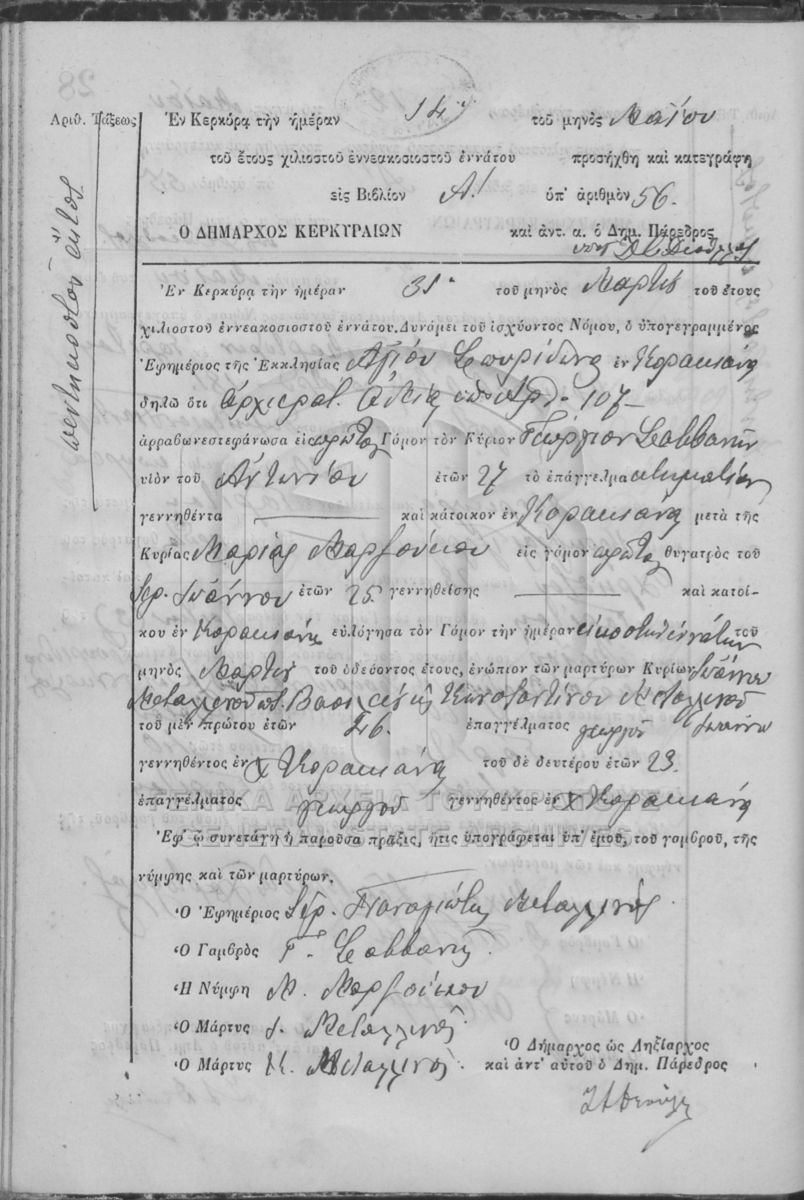 Ἀριθ. Τάξεως
πεντηκοστὸν ἕκτον
Ἐν Κερκύρᾳ τὴν ἡμέραν 14 τοῦ μηνὸς Μαΐου
τοῦ ἔτους χιλιοστοῦ ἐννεακοσιοστοῦ ἐννάτου προσήχθη καὶ κατεγράφη
εἰς Βιβλίον Α! ὑπ' ἀριθμὸν 56.
Ο ΔΗΜΑΡΧΟΣ ΚΕΡΚΥΡΑΙΩΝ καὶ ἀντ. α. ὁ Δημ. Πάρεδρος
Ἐν Κερκύρᾳ τὴν ἡμέραν 31 τοῦ μηνὸς Μαρτίου τοῦ ἔτους
χιλιοστοῦ ἐννεακοσιοστοῦ ἐννάτου. Δυνάμει τοῦ ἰσχύοντος Νόμου, ὁ ὑπογεγραμμένος
Ἐφημέριος τῆς Ἐκκλησίας Ἁγίου Σπυρίδωνα ἐν Κορακιάνα
δηλῶ ὅτι ἀρχιερατ. ἀδείᾳ ὑπ' ἀρθ. 107
ἀρραβωνεστεφάνωσα εἰς πρῶτον Γάμον τὸν Κύριον Γεώργιον Σαββανῆν
υἱὸν τοῦ Ἀντωνίου ἐτῶν 27 τὸ ἐπάγγελμα κτηματίαν
γεννηθέντα καὶ κάτοικον ἐν Κορακιάνα μετὰ τῆς
Κυρίας Μαρίας Μαρζούκου εἰς γάμον πρῶτον θυγατρὸς τοῦ
Ἰερ. Ἰωάννου ἐτῶν 25 γεννηθείσης καὶ κατοί-
κου ἐν Κορακιάνα εὐλόγησα τὸν Γάμον τὴν ἡμέραν εἰκοστὴν ἐννάτην τοῦ
μηνὸς Μαρτίου τοῦ ὁδεύοντος ἔτους, ἐνώπιον τῶν μαρτύρων Κυρίων Ἰωάννου
Μεταλληνοῦ ποτ. Βασιλείου καὶ Κωνσταντίνου Μεταλληνοῦ
Ἰωάννου
τοῦ μὲν πρώτου ἐτῶν 26. ἐπαγγέλματος γεωργοῦ
γεννηθέντος ἐν Κορακιάνα τοῦ δὲ δευτέρου ἐτῶν 23.
ἐπαγγέλματος γεωργοῦ γεννηθέντος ἐν Κορακιάνα
ΓΕΝΙΚΑ ΑΡΧΕΙΑ ΤΟΥ ΚΡΑΤΟΥΣ
GENERAL STATE ARCHIVES
Ἐφ' ᾧ συνετάγη ἡ παροῦσα πρᾶξις, ἥτις ὑπογράφεται ὑπ' ἐμοῦ, τοῦ γαμβροῦ, τῆς
νύμφης καὶ τῶν μαρτύρων.
Ὁ Ἐφημέριος Ἰερ. Παναγιώτης Μεταλληνὸς
Ὁ Γαμβρὸς Γ. Σαββανῆς
Ἡ Νύμφη Μ. Μαρζούκου
Ὁ Μάρτυς Ι. Μεταλλινὸς
Ὁ Μάρτυς Κ. Μεταλλινὸς
Ὁ Δήμαρχος ὡς Ληξίαρχος
καὶ ἀντ' αὐτοῦ ὁ Δημ. Πάρεδρος